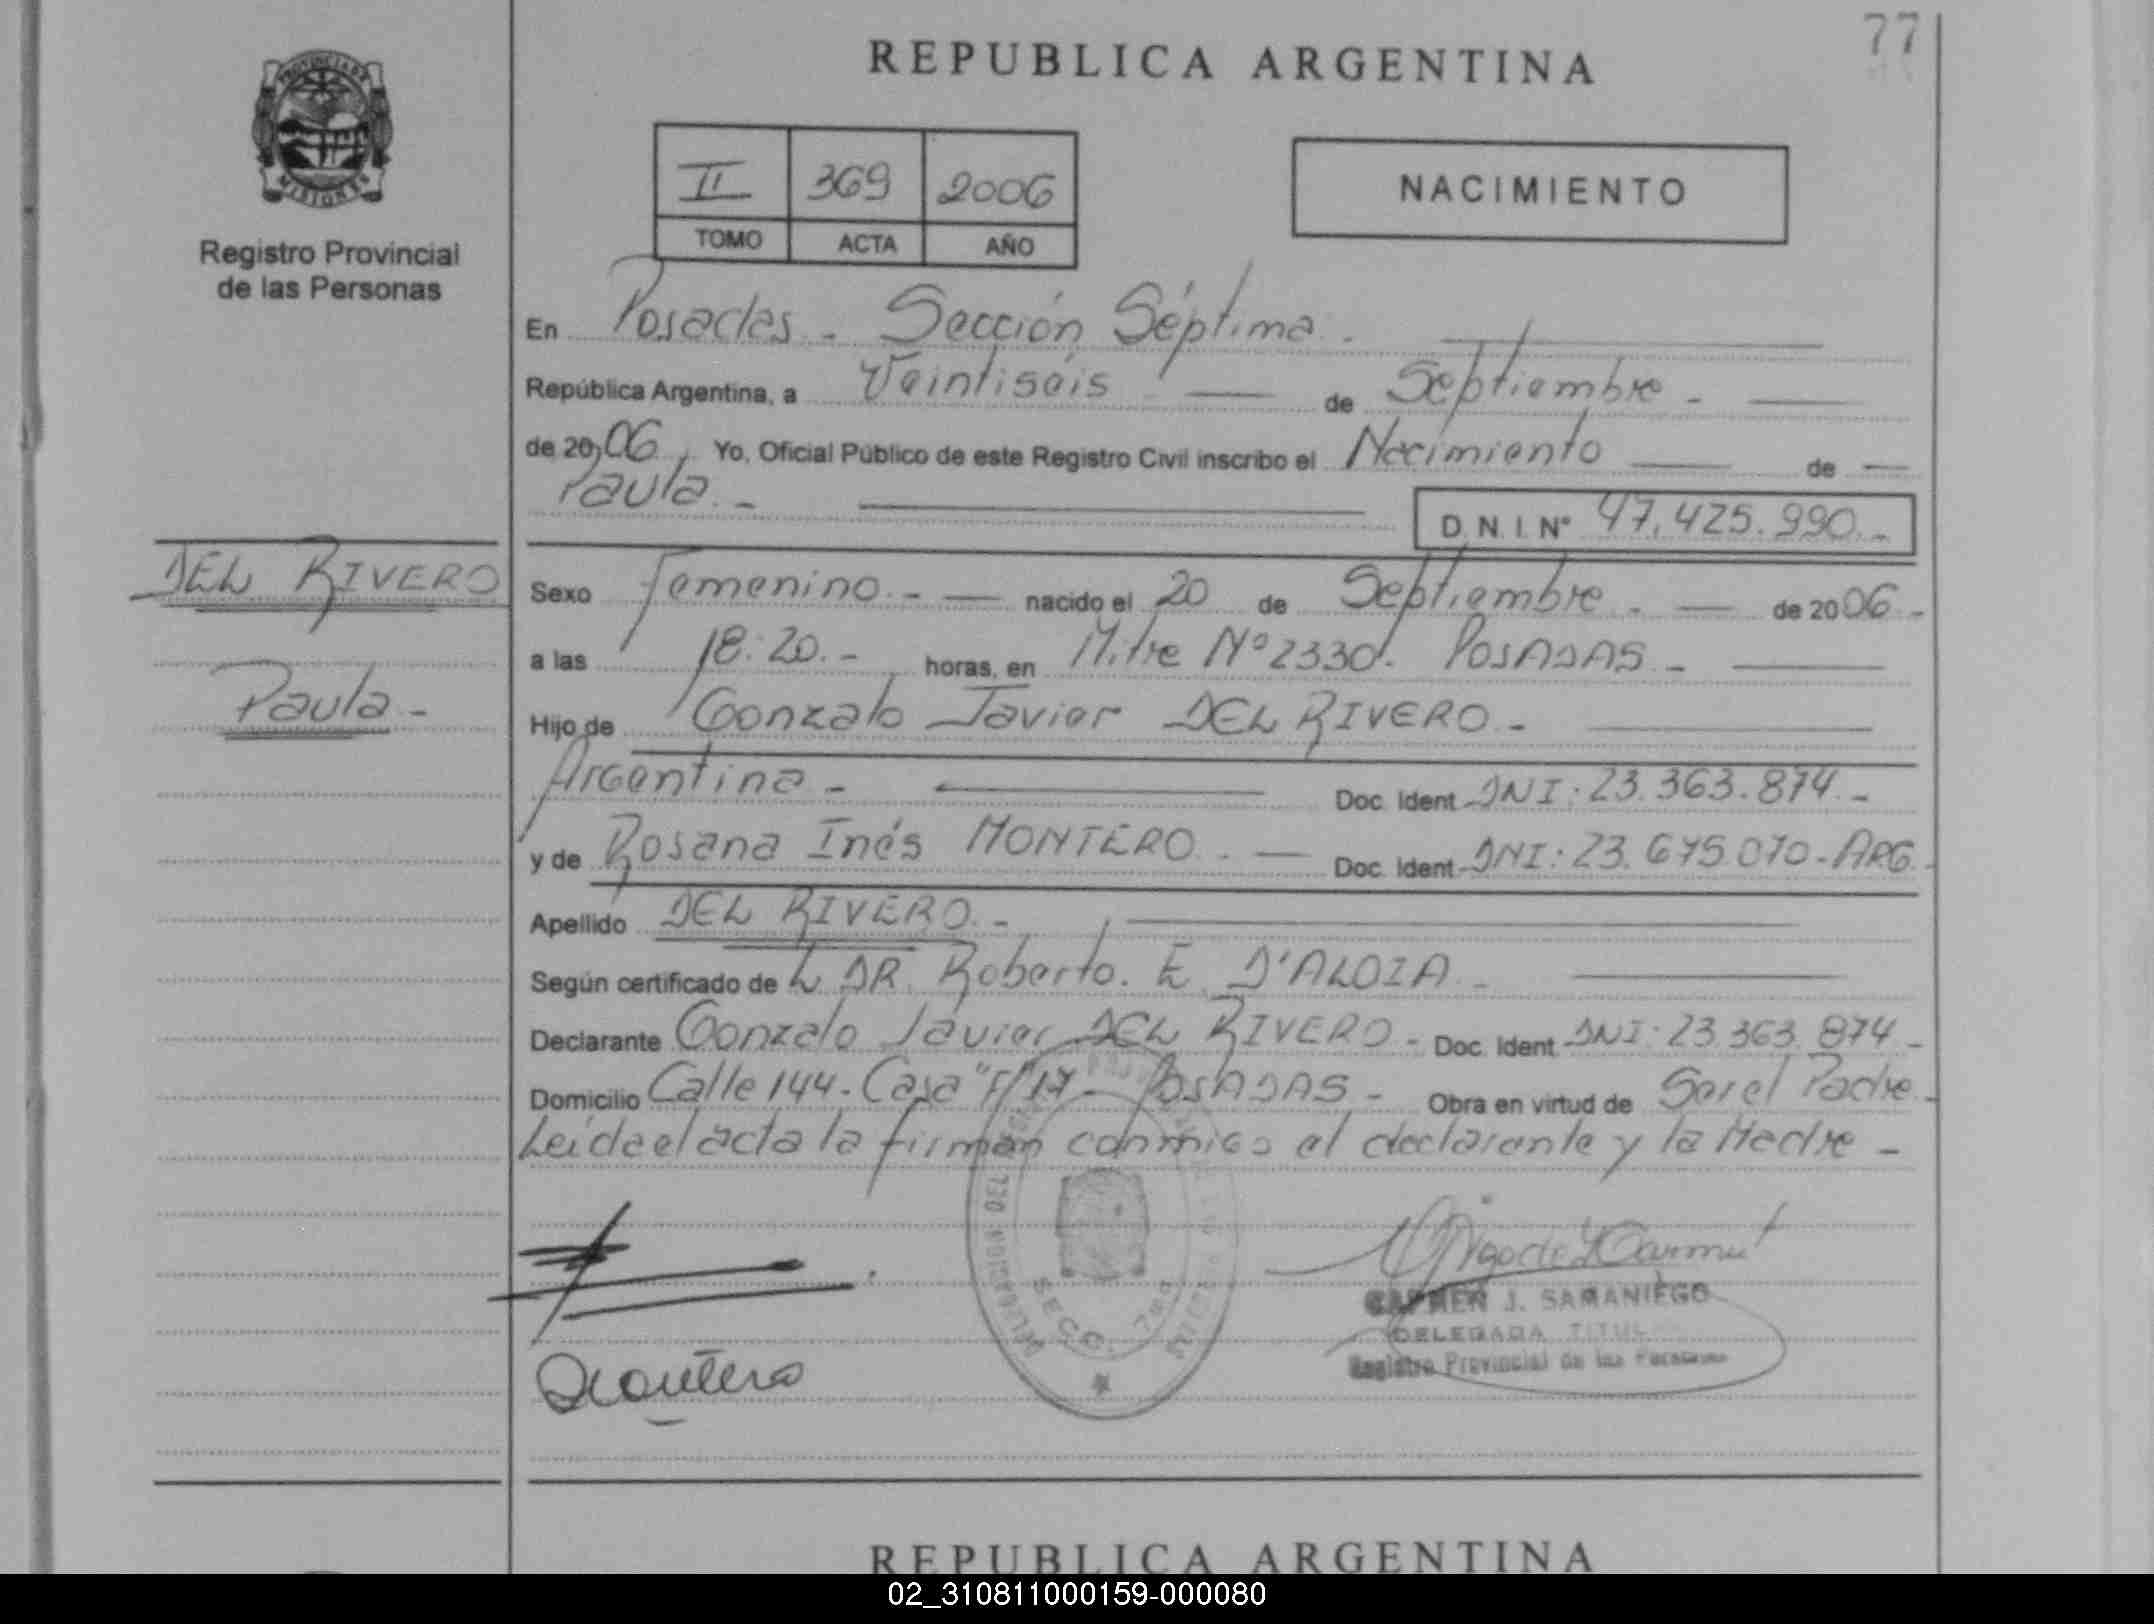 77
REPUBLICA ARGENTINA
PROVINCIA DE
MISIONES
Registro Provincial
de las Personas
II 369 2006
TOMO ACTA AÑO
NACIMIENTO
En Posadas - Sección Séptima.
República Argentina, a Veintiséis de Septiembre -
de 2006, Yo, Oficial Público de este Registro Civil inscribo el Nacimiento de
Paula. -
D.N.I. Nº 47.425.990.-
DEL RIVERO
Paula -
Sexo Femenino. - nacido el 20 de Septiembre. de 2006 -
a las 18:20. - horas, en Mitre Nº 2330. POSADAS -
Hijo de Gonzalo Javier DEL RIVERO. -
Argentina - Doc. Ident. DNI: 23.363.874. -
y de Rosana Inés MONTERO. - Doc. Ident. DNI: 23.675.070-ARG.
Apellido DEL RIVERO. -
Según certificado de L DR. Roberto. E. D'ALOIA. -
Declarante Gonzalo Javier DEL RIVERO - Doc. Ident. DNI: 23.363.874 -
Domicilio Calle 144 - Casa "F" 17 - POSADAS - Obra en virtud de Ser el Padre -
Leida el acta la firman conmigo el declarante y la Madre -
SECC. 7ma
CARMEN J. SAMANIEGO
DELEGADA TITUL
Registro Provincial de las Personas
REPUBLICA ARGENTINA
02_310811000159-000080